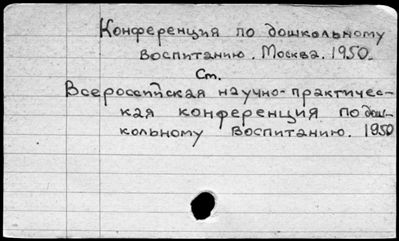 Конференция по дошкольному
воспитанию. Москва. 1950.
См.
Всероссийская научно-практичес-
кая конференция по дош-
кольному воспитанию. 1950